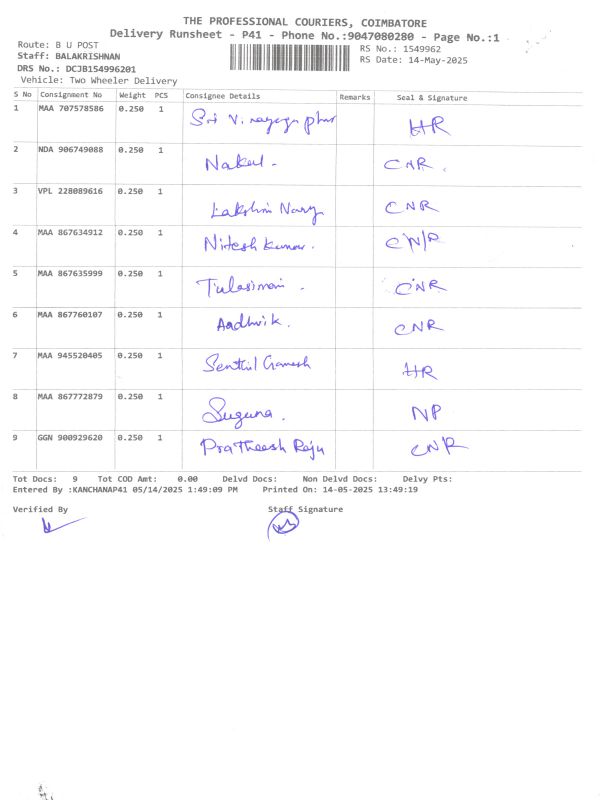 THE PROFESSIONAL COURIERS, COIMBATORE
Delivery Runsheet - P41 - Phone No.:9047080280 - Page No.:1
Route: B U POST
Staff: BALAKRISHNAN
DRS No.: DCJB154996201
Vehicle: Two Wheeler Delivery
RS No.: 1549962
RS Date: 14-May-2025
S No Consignment No Weight PCS Consignee Details Remarks Seal & Signature
1 MAA 707578586 0.250 1 Sri HR
2 NDA 906749088 0.250 1 Nakul. CNR.
3 VPL 228089616 0.250 1 Lakshmi CNR
4 MAA 867634912 0.250 1 Nitesh Kumar. CNR
5 MAA 867635999 0.250 1 Tulasimani. CNR
6 MAA 867760107 0.250 1 Aadhvik. CNR
7 MAA 945520405 0.250 1 Senthil Ganesh HR
8 MAA 867772879 0.250 1 Suguna. NP
9 GGN 900929620 0.250 1 Pratheesh Raju CNR
Tot Docs: 9 Tot COD Amt: 0.00 Delvd Docs: Non Delvd Docs: Delvy Pts:
Entered By :KANCHANAP41 05/14/2025 1:49:09 PM Printed On: 14-05-2025 13:49:19
Verified By Staff Signature